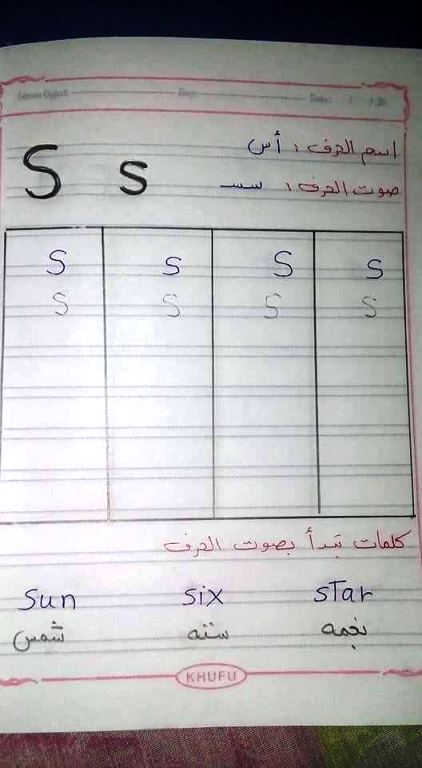 Lesson Day: Date: / / 20
S s
اسم الحرف : أس
صوت الحرف : سســ
S s S s
S s S s
كلمات تبدأ بصوت الحرف
sun six star
شمس سته نجمه
KHUFU